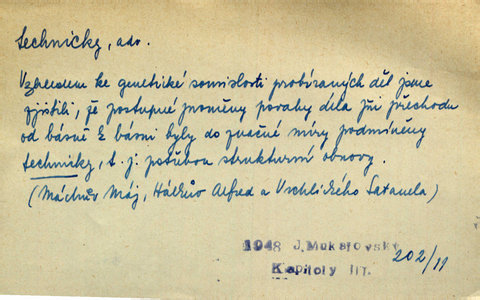 technicky, adv.
Vzhledem ke genetické souvislosti probíraných děl jsme
zjistili, že postupné proměny povahy díla při přechodu
od básně k básni byly do značné míry podmíněny
technicky, t. j. potřebou strukturní obnovy.
(Máchův Máj, Hálkův Alfred a Vrchlického Satanela)
1948 J. Mukařovský
Kapitoly III.
202/11